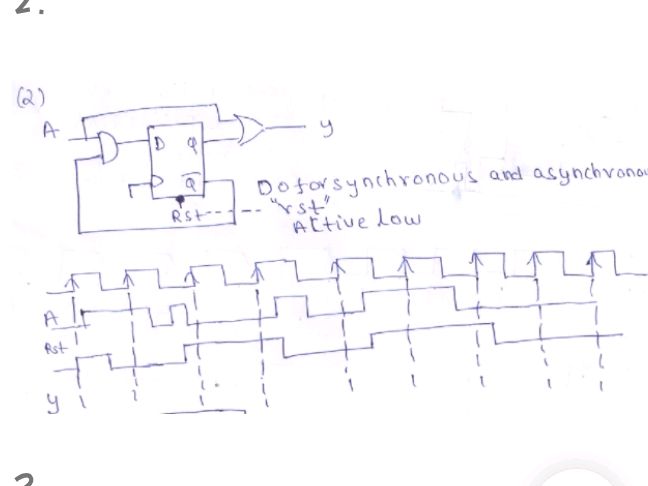 2.
(2)
A
D Q
y
Q̅
Do for synchronous and asynchronou
Rst
"rst"
Active low
A
Rst
y